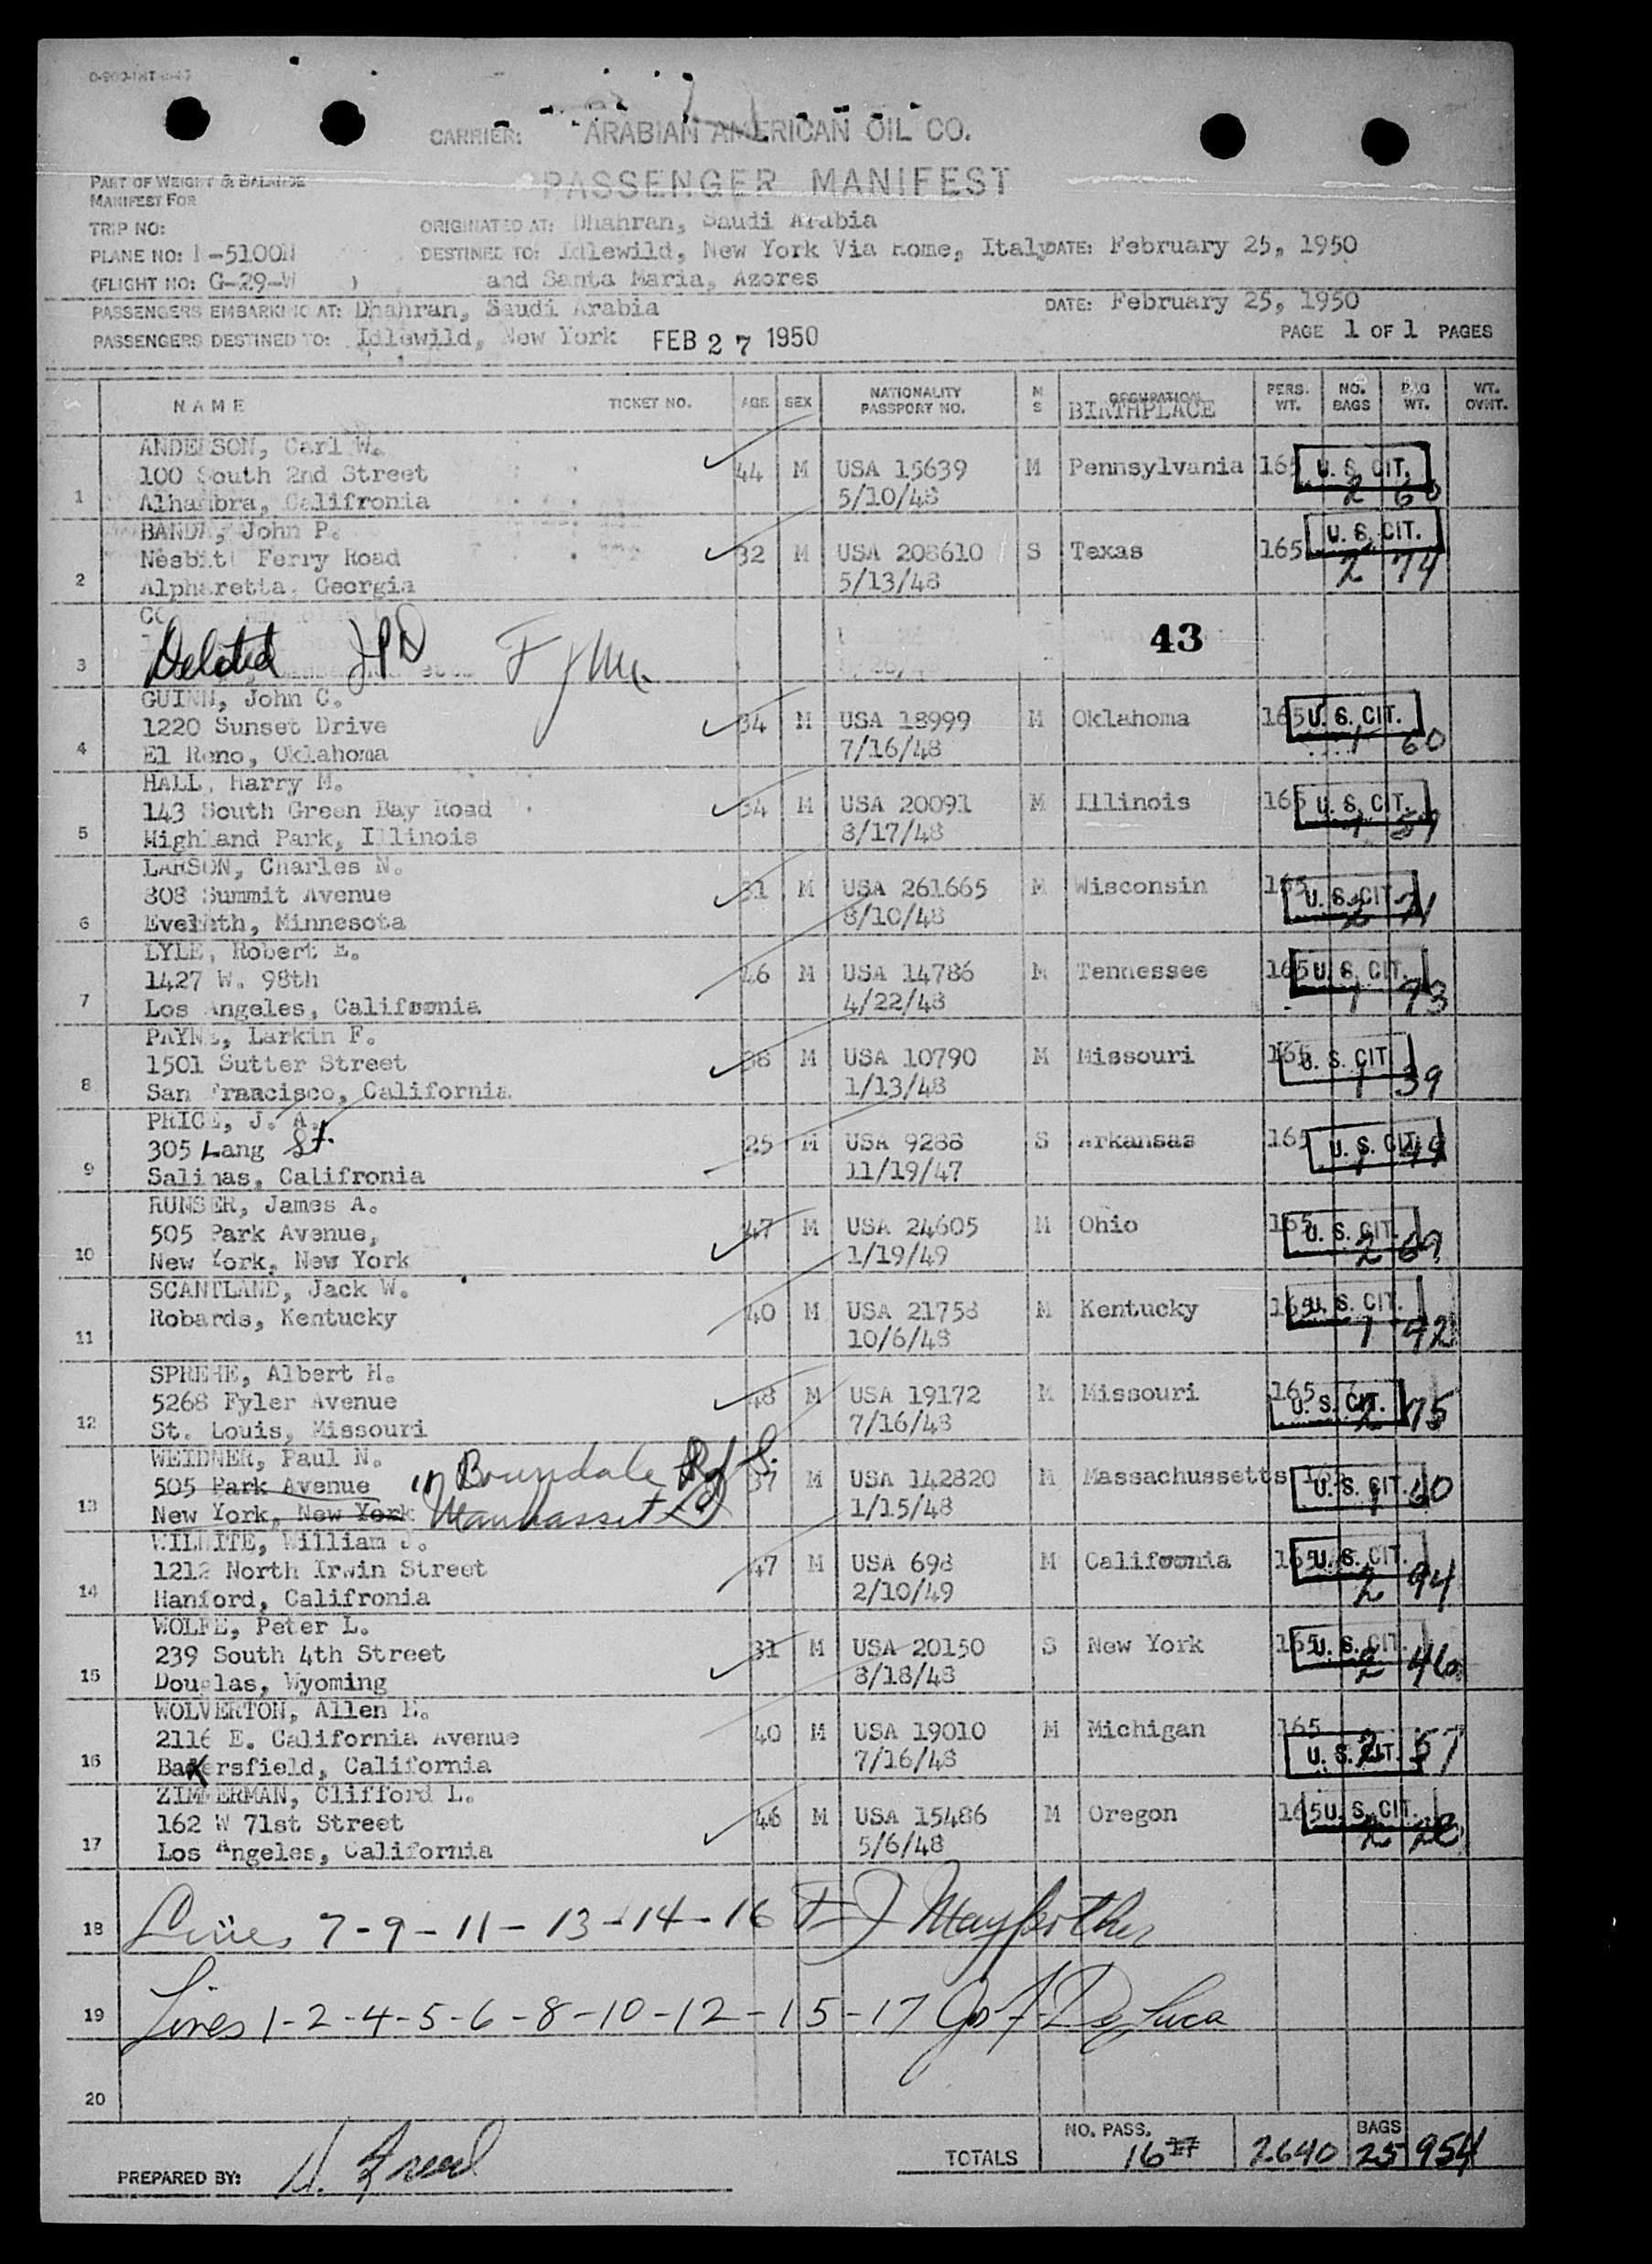 CARRIER: ARABIAN AMERICAN OIL CO.
PASSENGER MANIFEST
PART OF WEIGHT & BALANCE
MANIFEST FOR
TRIP NO: ORIGINATED AT: Dhahran, Saudi Arabia
PLANE NO: N-5100N DESTINED TO: Idlewild, New York Via Rome, Italy DATE: February 25, 1950
(FLIGHT NO: G-29-W ) and Santa Maria, Azores
PASSENGERS EMBARKING AT: Dhahran, Saudi Arabia DATE: February 25, 1950
PASSENGERS DESTINED TO: Idlewild, New York FEB 27 1950 PAGE 1 OF 1 PAGES
NAME TICKET NO. AGE SEX NATIONALITY PASSPORT NO. M S OCCUPATION BIRTHPLACE PERS. WT. NO. BAGS BAG WT. WT. OVWT.
ANDERSON, Carl W.
100 South 2nd Street 44 M USA 15639 M Pennsylvania 165 U. S. CIT.
1 Alhambra, Califronia 5/10/48 2 60
BANDA, John P. U. S. CIT.
Nesbitt Ferry Road 32 M USA 208610 S Texas 165
2 Alpharetta, Georgia 5/13/48 2 74
43
3 Deleted JPD
GUINN, John C.
1220 Sunset Drive 34 M USA 18999 M Oklahoma 165 U. S. CIT.
4 El Reno, Oklahoma 7/16/48 1 60
HALL, Harry M.
143 South Green Bay Road 34 M USA 20091 M Illinois 165 U. S. CIT.
5 Highland Park, Illinois 8/17/48 1
LARSON, Charles N.
808 Summit Avenue 31 M USA 261665 M Wisconsin 165 U. S. CIT.
6 Eveleth, Minnesota 8/10/48 2 71
LYLE, Robert E.
1427 W. 98th 46 M USA 14786 M Tennessee 165 U. S. CIT.
7 Los Angeles, California 4/22/48 1
PAYNE, Larkin F.
1501 Sutter Street 38 M USA 10790 M Missouri 165 U. S. CIT.
8 San Francisco, California 1/13/48 1 39
PRICE, J. A.
305 Lang St. 25 M USA 9288 S Arkansas 165 U. S. CIT.
9 Salinas, Califronia 11/19/47 1 49
RUNSER, James A.
505 Park Avenue, 47 M USA 24605 M Ohio 165 U. S. CIT.
10 New York, New York 1/19/49 2
SCANTLAND, Jack W.
Robards, Kentucky 40 M USA 21758 M Kentucky 165 U. S. CIT.
11 10/6/48 1 42
SPREHE, Albert H.
5268 Fyler Avenue 48 M USA 19172 M Missouri 165 U. S. CIT.
12 St. Louis, Missouri 7/16/48 2 75
WEIDNER, Paul N.
505 Park Avenue Boundale Rd S. 37 M USA 142820 M Massachussetts 165 U. S. CIT.
13 New York, New York Manhasset 1/15/48 1
WILHITE, William J.
1212 North Irwin Street 47 M USA 698 M California 165 U. S. CIT.
14 Hanford, Califronia 2/10/49 2 94
WOLFE, Peter L.
239 South 4th Street 31 M USA 20150 S New York 165 U. S. CIT.
15 Douglas, Wyoming 8/18/48 2 46
WOLVERTON, Allen E.
2116 E. California Avenue 40 M USA 19010 M Michigan 165
16 Bakersfield, California 7/16/48 U. S. CIT. 2 57
ZIMMERMAN, Clifford L.
162 W 71st Street 46 M USA 15486 M Oregon 165 U. S. CIT.
17 Los Angeles, California 5/6/48 2 28
18 Lines 7-9-11-13-14-16
19 Lines 1-2-4-5-6-8-10-12-15-17 Jos F. De Luca
20
PREPARED BY: TOTALS NO. PASS. 16 17 2640 BAGS 25 954